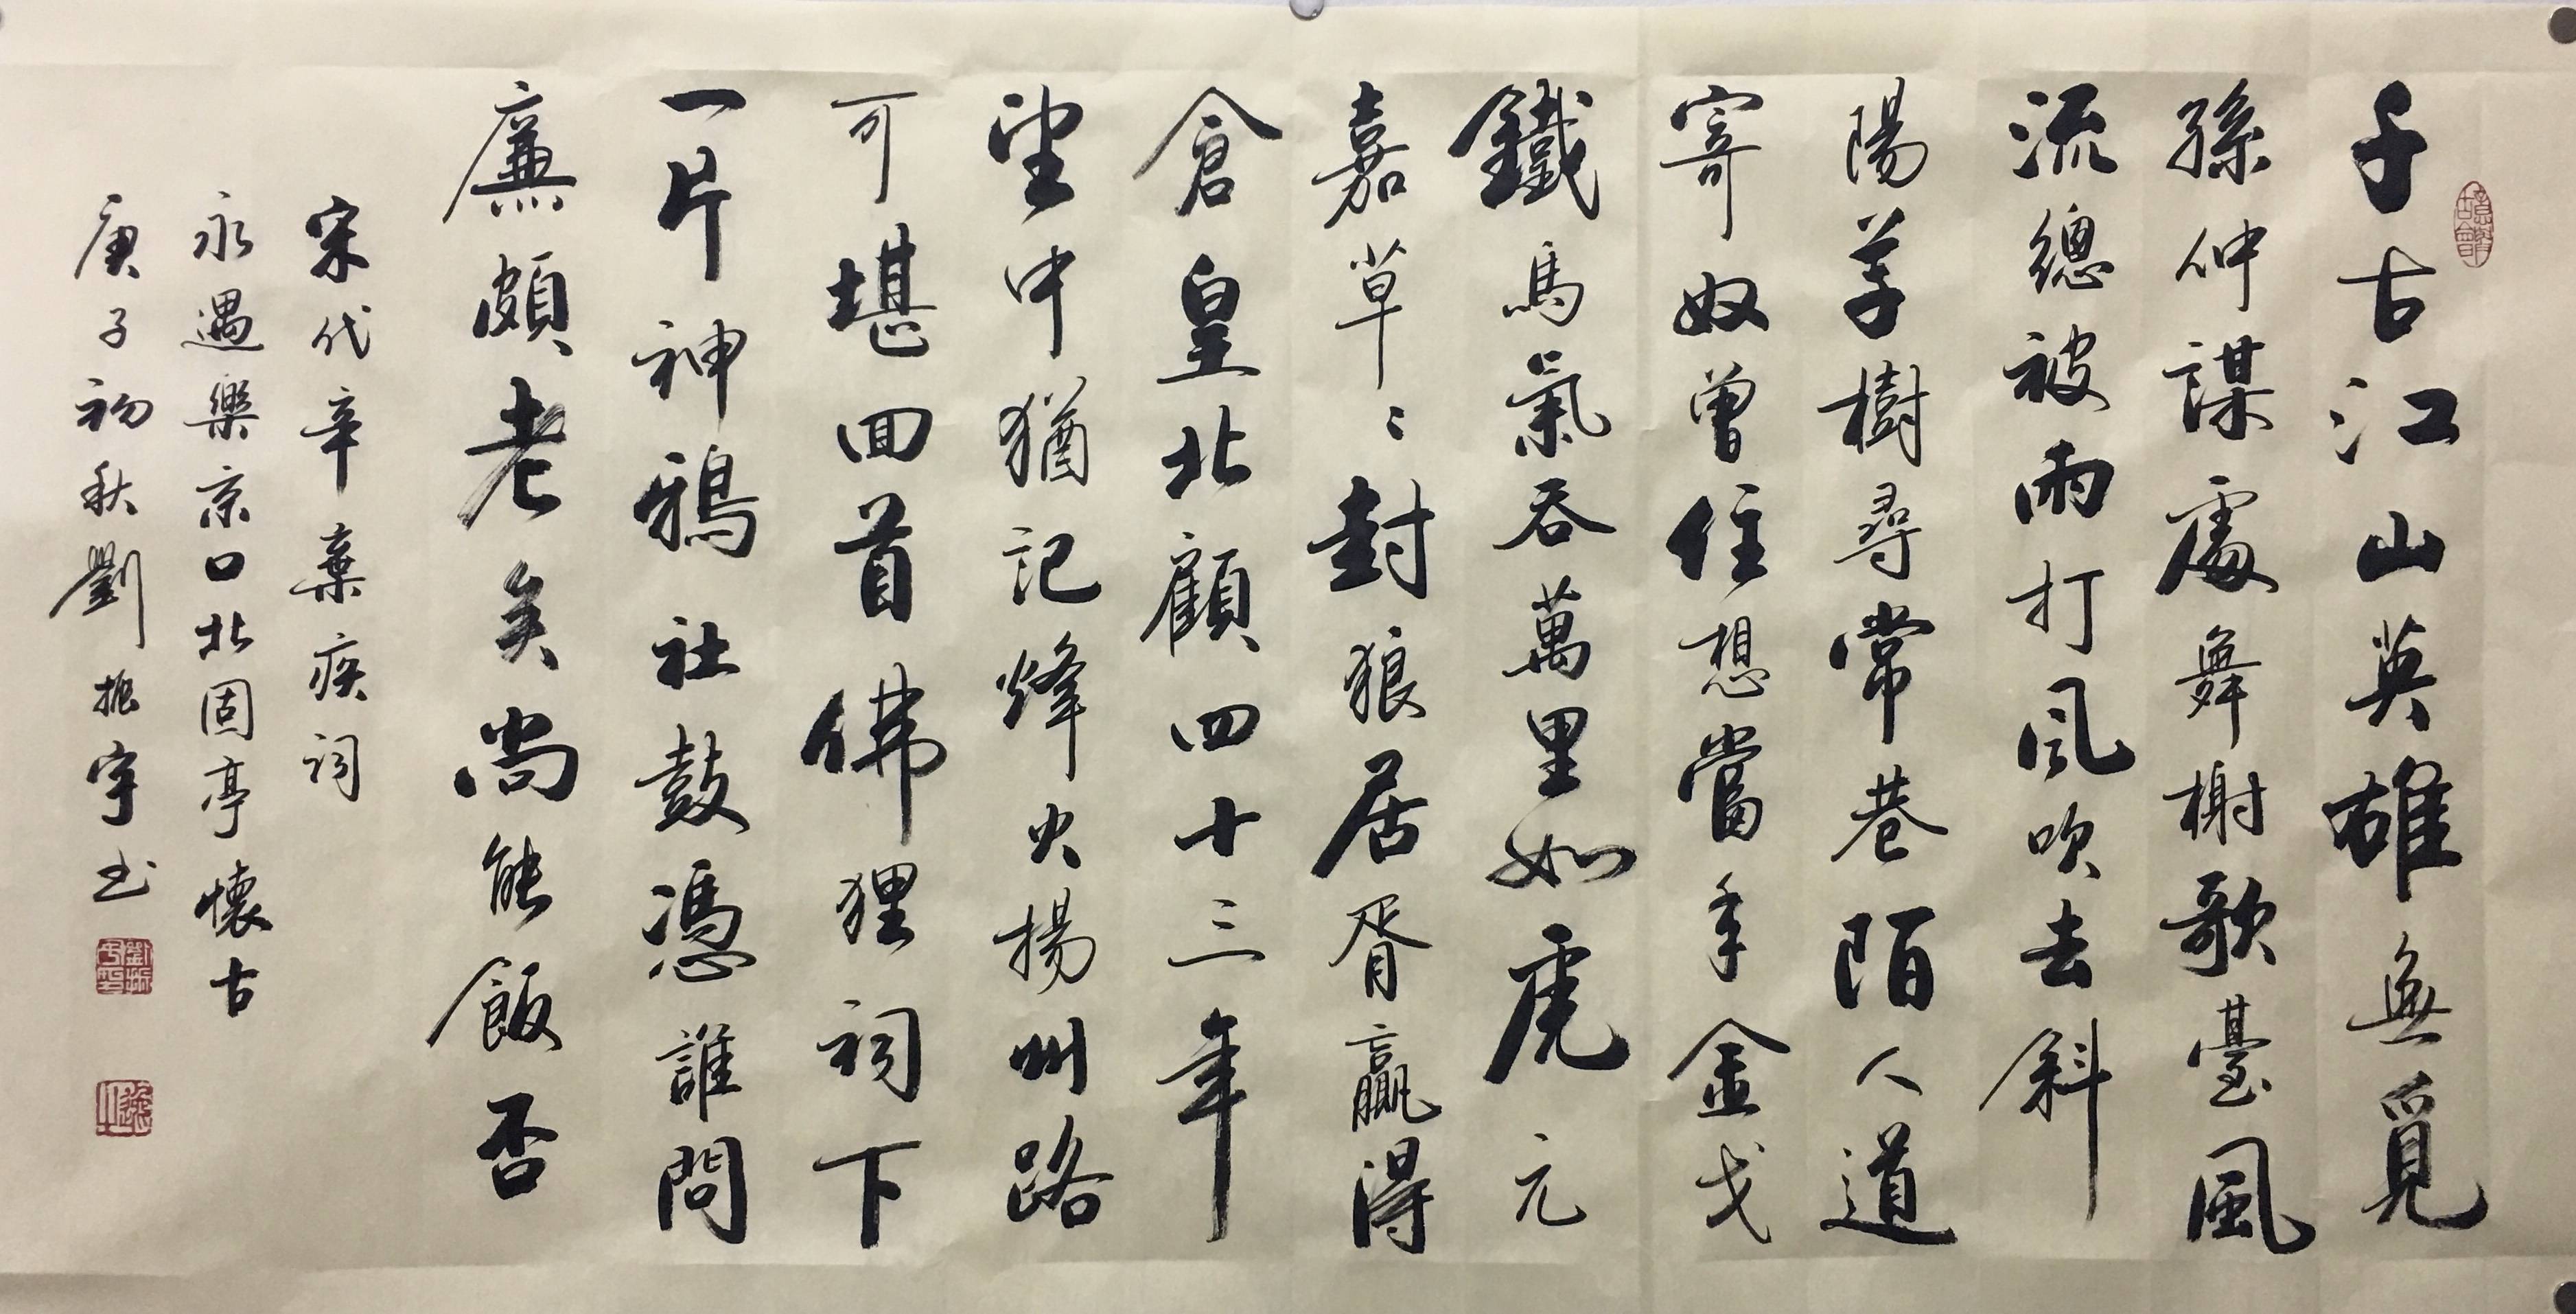 千古江山英雄無覓
孫仲謀處舞榭歌臺風
流總被雨打風吹去斜
陽草樹尋常巷陌人道
寄奴曾住想當年金戈
鐵馬氣吞萬里如虎元
嘉草〻封狼居胥贏得
倉皇北顧四十三年
望中猶記烽火揚州路
可堪回首佛狸祠下
一片神鴉社鼓憑誰問
廉頗老矣尚能飯否
宋代辛棄疾詞
永遇樂京口北固亭懷古
庚子初秋劉振宇书